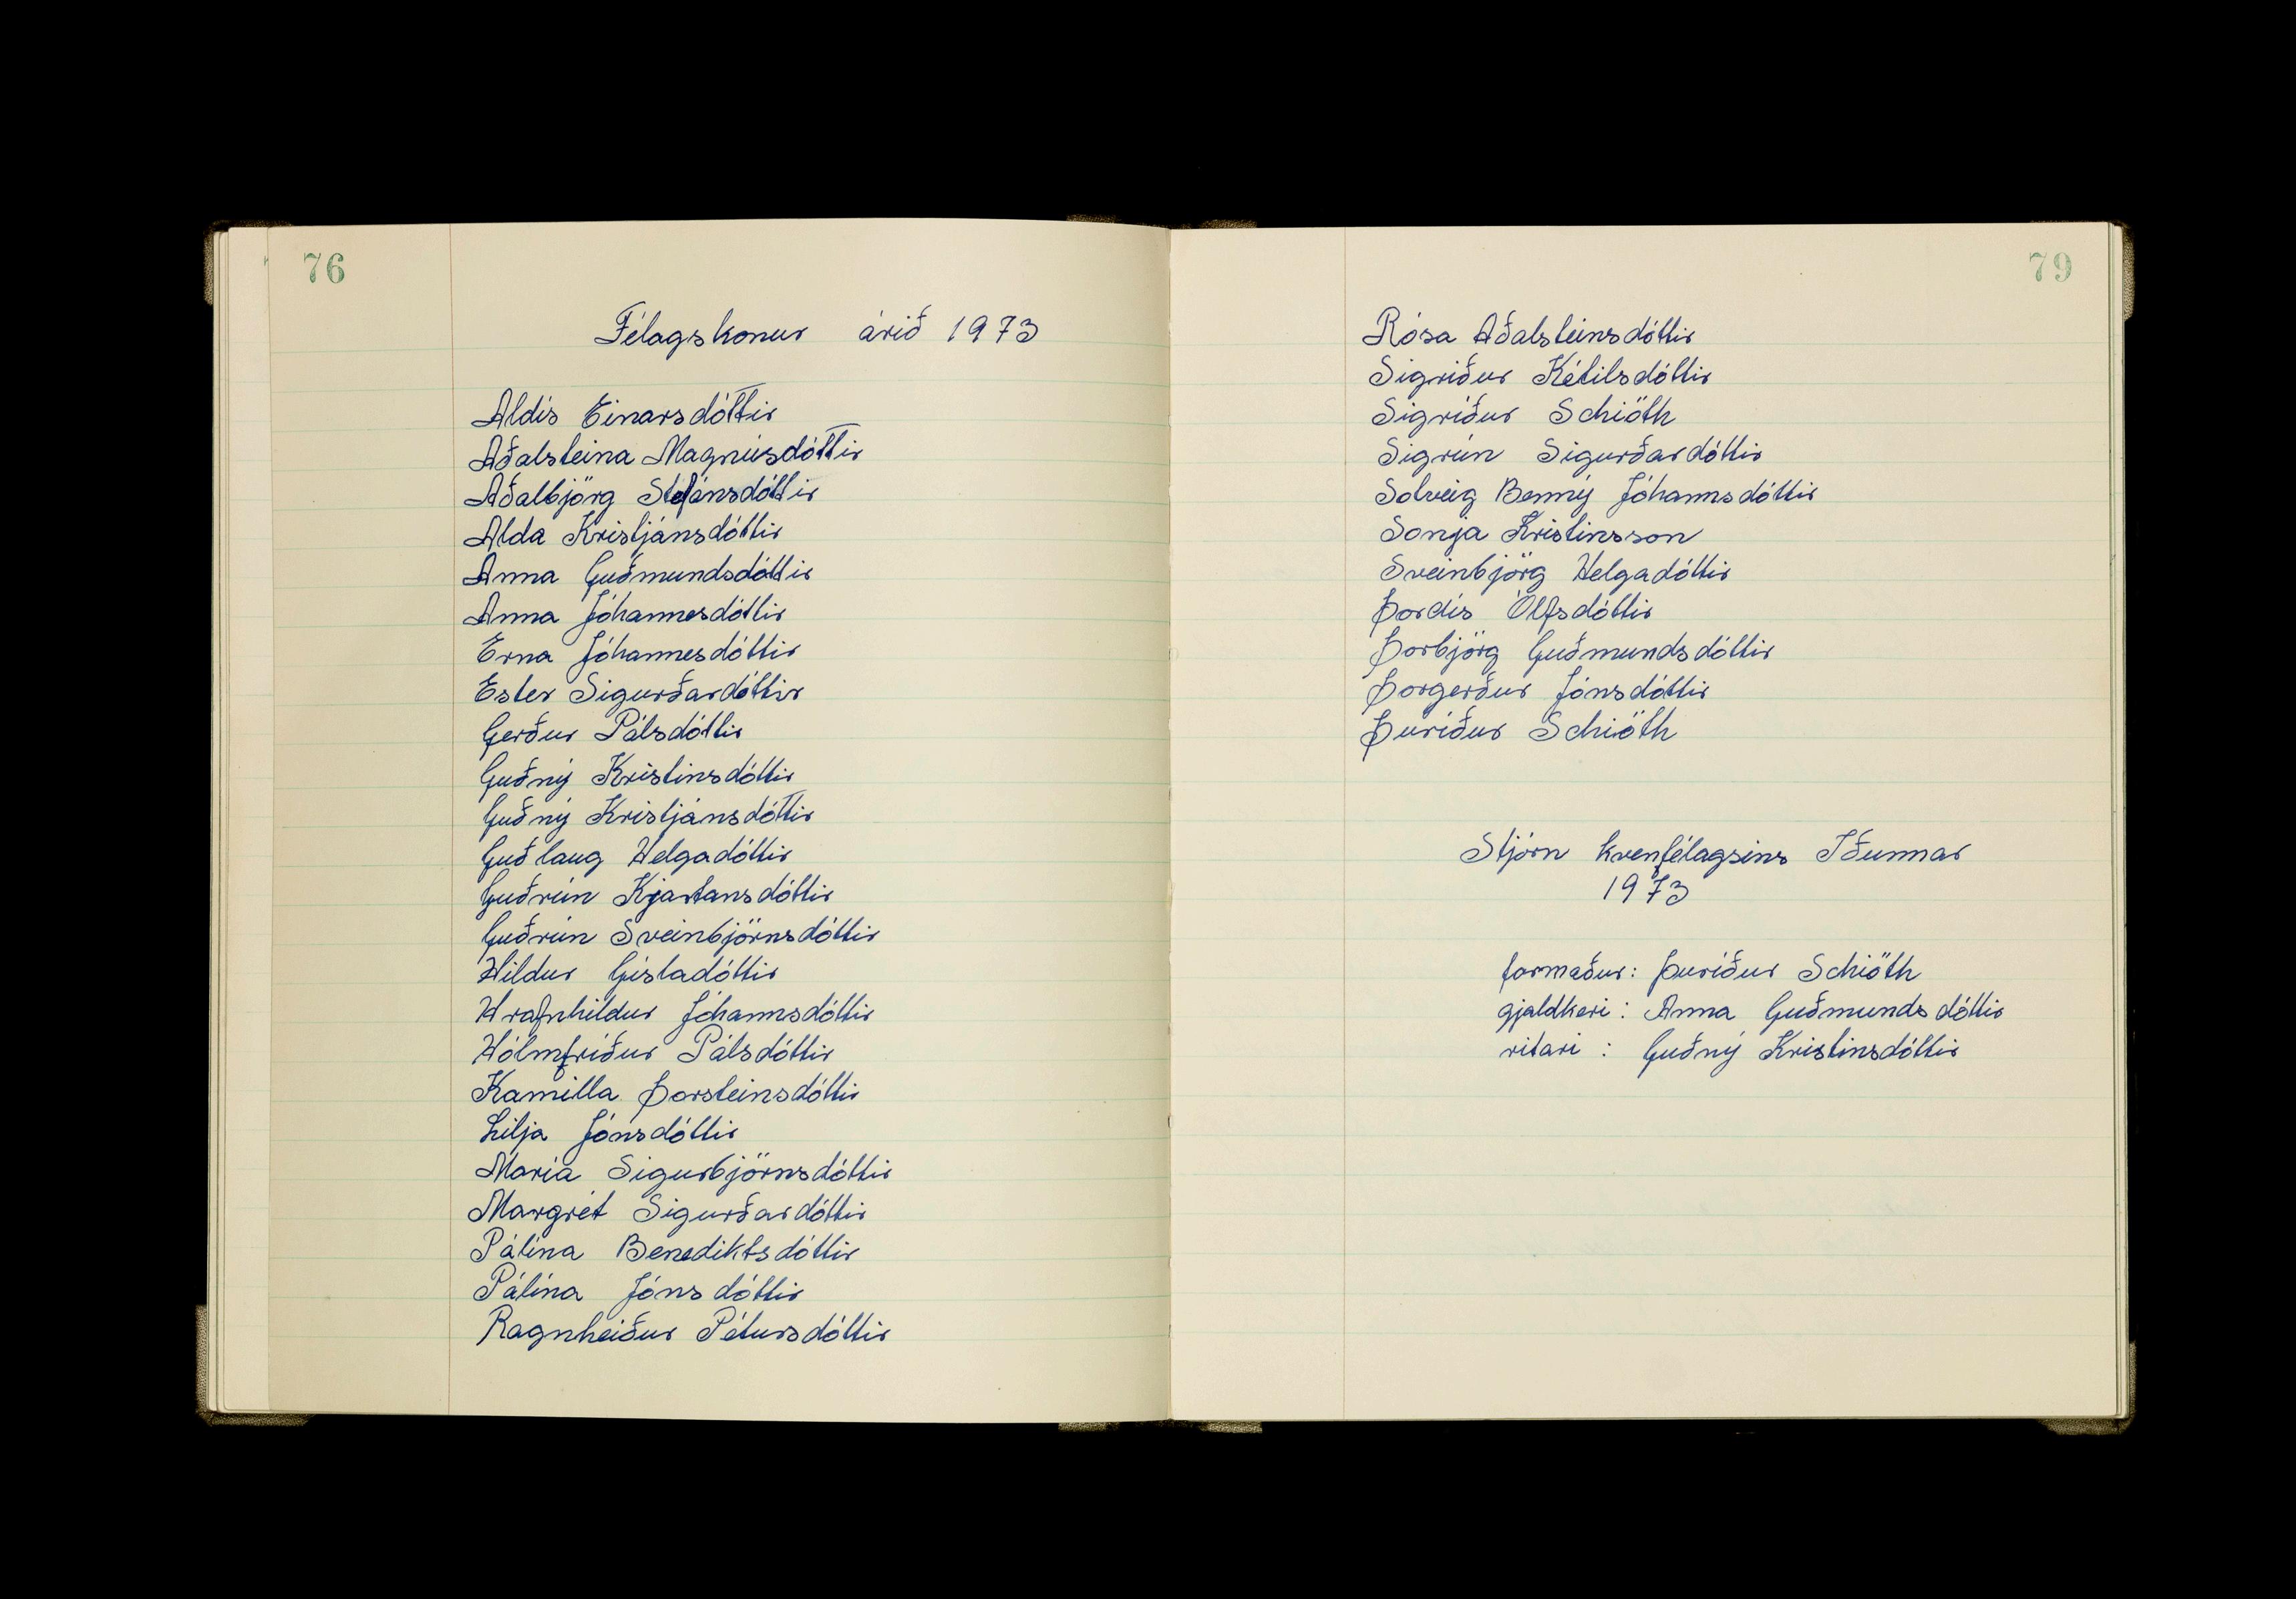 76
Félagskonur árið 1973
Aldís Einarsdóttir
Aðalsteina Magnúsdóttir
Aðalbjörg Stefánsdóttir
Alda Kristjánsdóttir
Anna Guðmundsdóttir
Anna Jóhannesdóttir
Erna Jóhannesdóttir
Ester Sigurðardóttir
Gerður Pálsdóttir
Guðný Kristinsdóttir
Guðný Kristjánsdóttir
Guðlaug Helgadóttir
Guðrún Kjartansdóttir
Guðrún Sveinbjörnsdóttir
Hildur Gísladóttir
Hrafnhildur Jóhannsdóttir
Hólmfríður Pálsdóttir
Kamilla Þorsteinsdóttir
Lilja Jónsdóttir
María Sigurbjörnsdóttir
Margrét Sigurðardóttir
Pálína Benediktsdóttir
Pálína Jónsdóttir
Ragnheiður Pétursdóttir
79
Rósa Aðalsteinsdóttir
Sigríður Ketilsdóttir
Sigríður Schiöth
Sigrún Sigurðardóttir
Solveig Benný Jóhannsdóttir
Sonja Kristinsson
Sveinbjörg Helgadóttir
Þordís Ólfsdóttir
Þorbjörg Guðmundsdóttir
Þorgerður Jónsdóttir
Þuríður Schiöth
Stjórn kvenfélagsins Iðunnar
1973
formaður: Þuríður Schiöth
gjaldkeri: Anna Guðmundsdóttir
ritari: Guðný Kristinsdóttir